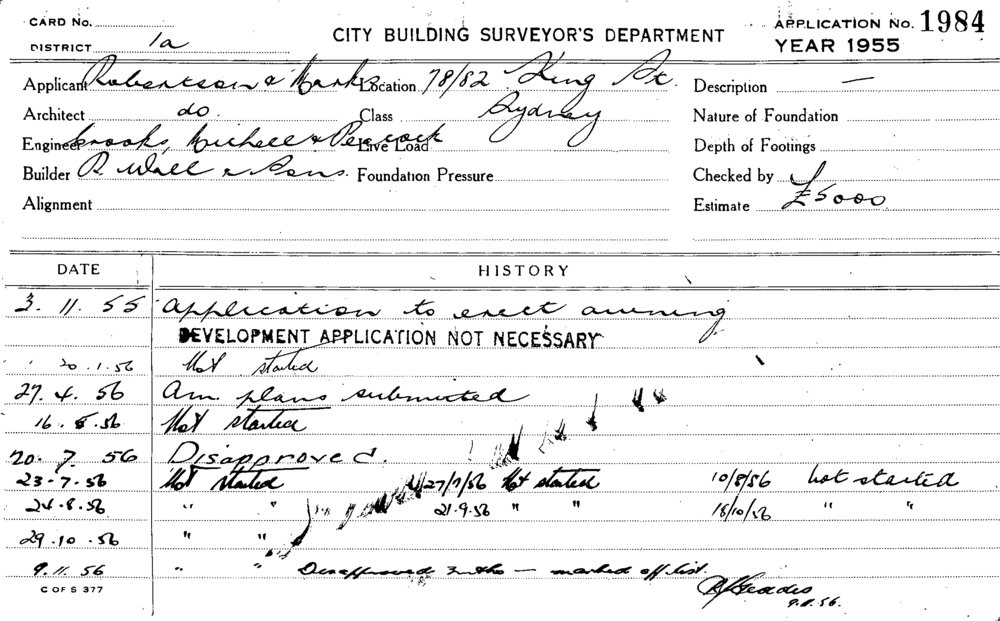 CARD No.
DISTRICT 1a
CITY BUILDING SURVEYOR'S DEPARTMENT
APPLICATION No. 1984
YEAR 1955
Applicant Robertson & Marks Location 78/82 King St. Description —
Architect do. Class Sydney Nature of Foundation
Engineer Crooks, Michell & Peacock Live Load Depth of Footings
Builder R. Wall & Sons. Foundation Pressure Checked by
Alignment Estimate £5000
DATE HISTORY
3. 11. 55 Application to erect awning
DEVELOPMENT APPLICATION NOT NECESSARY
20.1.56 Not started
27. 4. 56 Am. plans submitted
16. 5. 56 Not started
20. 7. 56 Disapproved.
23-7-56 Not started 27/7/56 Not started 10/8/56 not started
24.8.56 " " 21.9.56 " " 18/10/56 " "
29.10.56 " "
9.11.56 " " Disapproved 3 mths — marked off list.
C OF S 377
9.11.56.